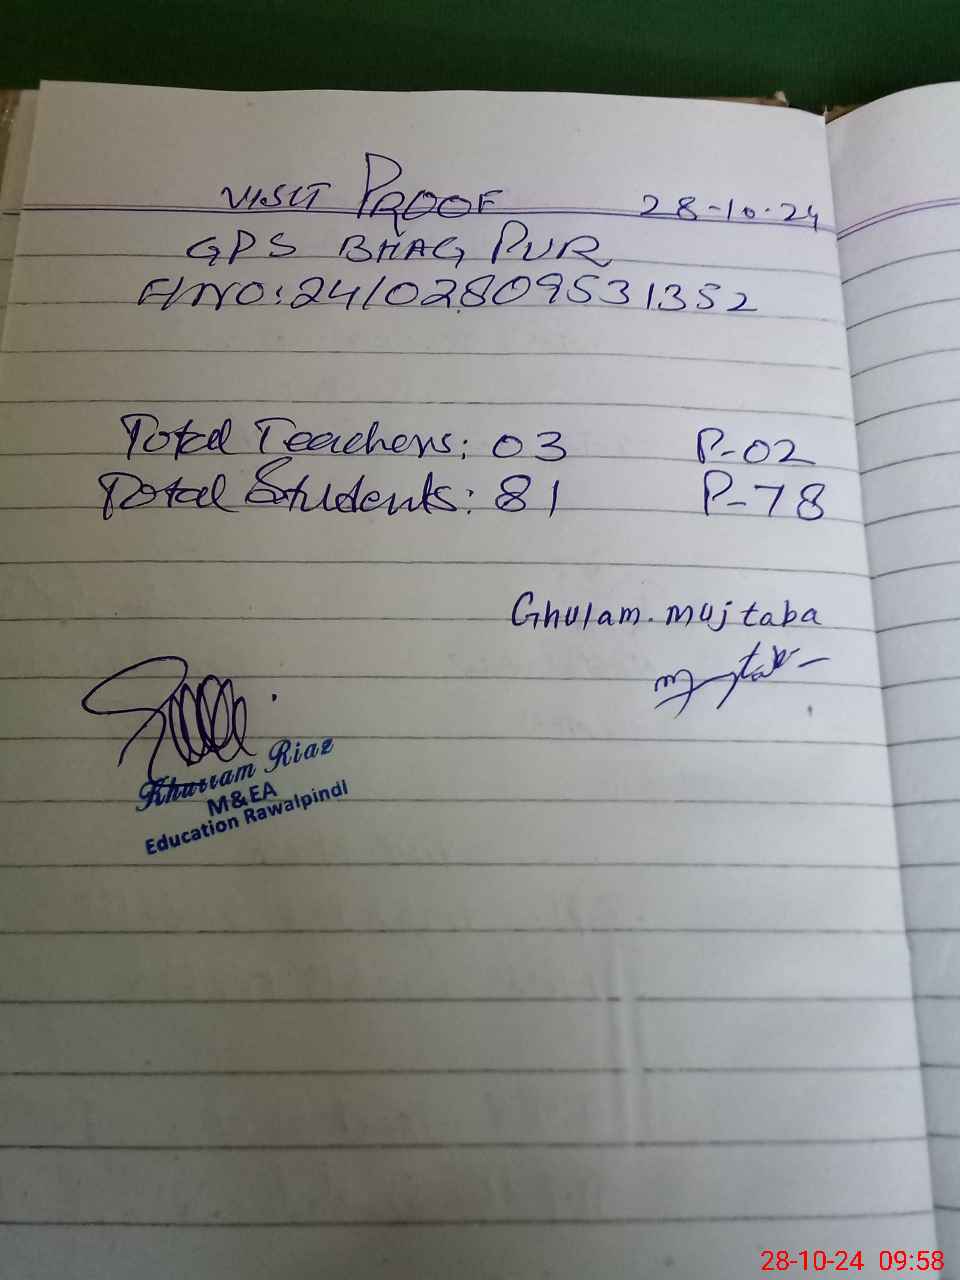 VISIT PROOF 28-10-24
GPS BHAG PUR
F/NO:24102809531352
Total Teachers: 03 P-02
Total Students: 81 P-78
Ghulam. Mujtaba
Khurram Riaz
M&EA
Education Rawalpindi
28-10-24 09:58